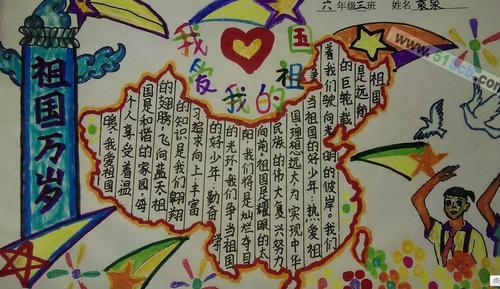 六年级三班 姓名
我爱我的祖国
祖国万岁
祖国
是远航
的巨轮载
着我们驶向光明的彼岸。我们
争当祖国的好少年:热爱祖
国理想远大为实现中华
民族的伟大复兴努力
向前,祖国是耀眼的太
阳,我们将是灿烂夺目
的光环。我们争当祖国
的好少年:勤奋学
习追求向上丰富
的知识是我们翱翔
的翅膀,飞向蓝天祖
国是和谐的家园,每
个人享受着温
暖,我爱祖国